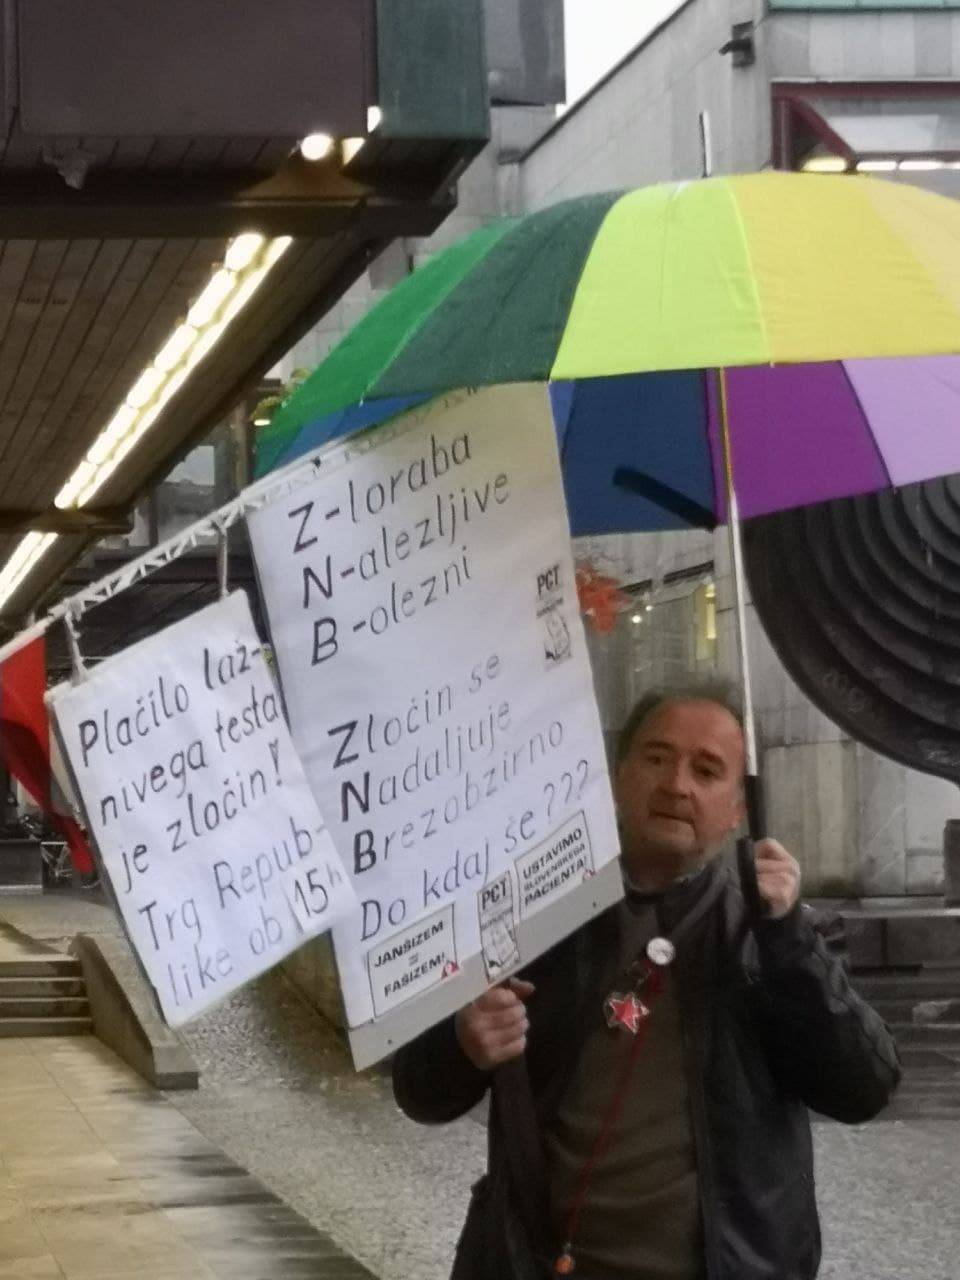 Plačilo laž-
nivega testa
je zločin!
Trg Repub-
like ob 15h
Z-loraba
N-alezljive
B-olezni
PCT
Zločin se
Nadaljuje
Brezobzirno
Do kdaj še???
JANŠIZEM
=
FAŠIZEM!
PCT
USTAVIMO
SLOVENSKEGA
PACIENTA!